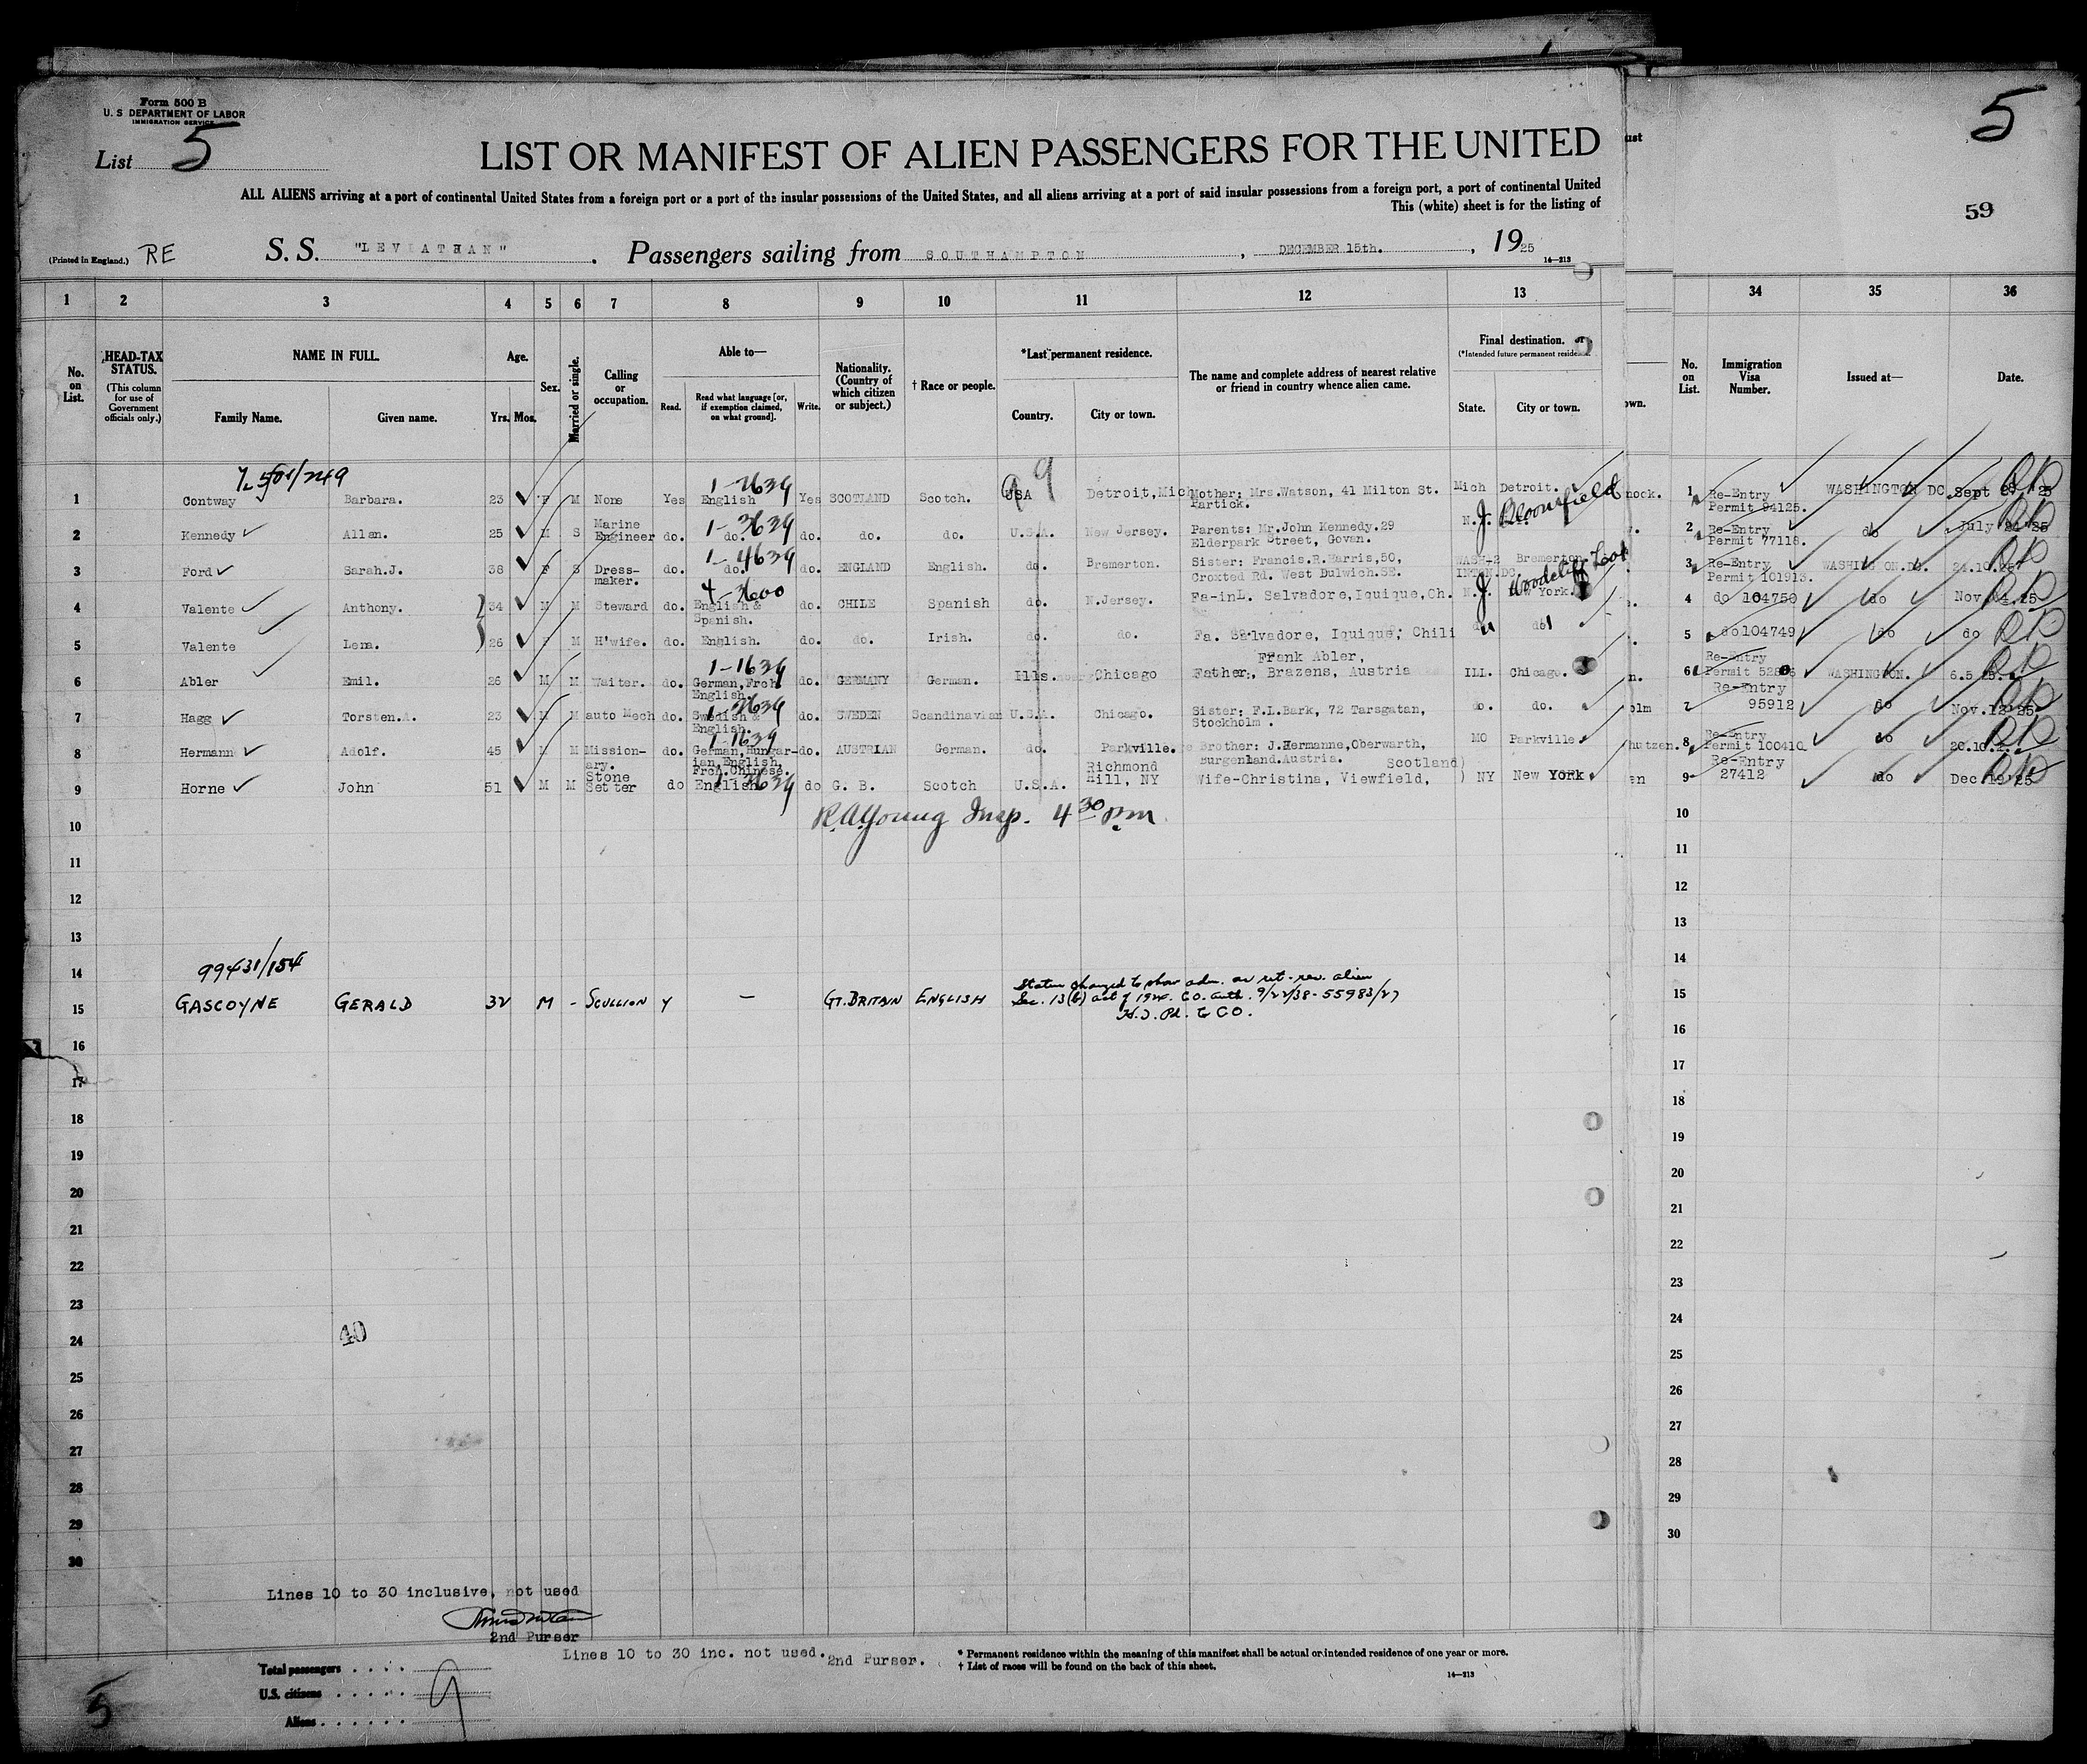 Form 500 B
U. S DEPARTMENT OF LABOR
IMMIGRATION SERVICE
List 5
LIST OR MANIFEST OF ALIEN PASSENGERS FOR THE UNITED
ALL ALIENS arriving at a port of continental United States from a foreign port or a port of the insular possessions of the United States, and all aliens arriving at a port of said insular possessions from a foreign port, a port of continental United
This (white) sheet is for the listing of
(Printed in England.) RE S. S. "LEVIATHAN". Passengers sailing from SOUTHAMPTON, DECEMBER 15th., 1925
14-213
5
59
1 2 3 4 5 6 7 8 9 10 11 12 13 34 35 36
No. on List.
HEAD-TAX STATUS.
(This column for use of Government officials only.)
NAME IN FULL.
Family Name. Given name.
Age.
Yrs. Mos.
Sex.
Married or single.
Calling or occupation.
Able to—
Read. Read what language [or, if exemption claimed, on what ground]. Write.
Nationality. (Country of which citizen or subject.)
† Race or people.
*Last permanent residence.
Country. City or town.
The name and complete address of nearest relative or friend in country whence alien came.
Final destination.
(*Intended future permanent
State. City or town.
No. on List.
Immigration Visa Number.
Issued at—
Date.
1-7639
1 Contway Barbara. 23 F M None Yes English Yes SCOTLAND Scotch. USA Detroit, Mich Mother; Mrs.Watson, 41 Milton St. Partick. Mich Detroit. 1 Re-Entry Permit 94125. WASHINGTON DC. Sept
1-3639
2 Kennedy Allan. 25 M S Marine Engineer do. do. do. do. do. U.S.A. New Jersey. Parents: Mr.John Kennedy.29 Elderpark Street, Govan. N.J. Bloomfield 2 Re-Entry Permit 77118. do July
1-4639
3 Ford Sarah.J. 38 F S Dress-maker. do. do. do. ENGLAND English. do. Bremerton. Sister; Francis.R.Harris,50, Croxted Rd. West Dulwich.SE. Bremerton 3 Re-Entry Permit 101913. WASHINGTON.DC.
4-3600
4 Valente Anthony. 34 M M Steward do. English & Spanish. do. CHILE Spanish do. N.Jersey. Fa-inL. Salvadore,Iquique,Ch. N.J. Woodcliff 4 do 104750 do Nov
5 Valente Lena. 26 F M H'wife. do. English. do. do. Irish. do. do. Fa. Salvadore, Iquique, Chili do 5 do 104749 do do
1-1639
6 Abler Emil. 26 M M Waiter. do. German,Frch English. do. GERMANY German. Ills. Chicago Frank Abler, Father:, Brazens, Austria ILL. Chicago. 6 Re-Entry Permit WASHINGTON. 6.5
1-3639
7 Hagg Torsten. 23 M M auto Mech do. Swedish & English. do. SWEDEN Scandinavian U.S.A. Chicago. Sister; F.L.Bark, 72 Tarsgatan, Stockholm. do. do. 7 Re-Entry 95912 do Nov.
1-1639
8 Hermann Adolf. 45 M M Mission-ary. do. German,Hungar-ian,English, Frch.Chinese. do. AUSTRIAN German. do. Parkville. Brother: J.Hermanne,Oberwarth, Burgenland.Austria. MO Parkville. 8 Re-Entry Permit 100410 do
1-3639
9 Horne John 51 M M Stone Setter do English do G. B. Scotch U.S.A. Richmond Hill, NY Wife-Christina, Viewfield, Scotland) NY New York 9 Re-Entry 27412 do Dec
10 R.A.Young Insp. 4 30 p.m.
11
12
13
14 99431/154
15 GASCOYNE GERALD 32 M - SCULLION Y — GT. BRITAIN ENGLISH Status changed to show adm. as ret. res. alien
Sec. 13(b) act of 1924. CO. auth. 9/22/38-55983/27
H.T. Pd. to CO.
16
17
18
19
20
21
22
23
24 40
25
26
27
28
29
30
Lines 10 to 30 inclusive, not used
2nd Purser
Lines 10 to 30 inc. not used. 2nd Purser.
* Permanent residence within the meaning of this manifest shall be actual or intended residence of one year or more.
† List of races will be found on the back of this sheet.
14-213
Total passengers
U.S. citizens 9
Aliens
5